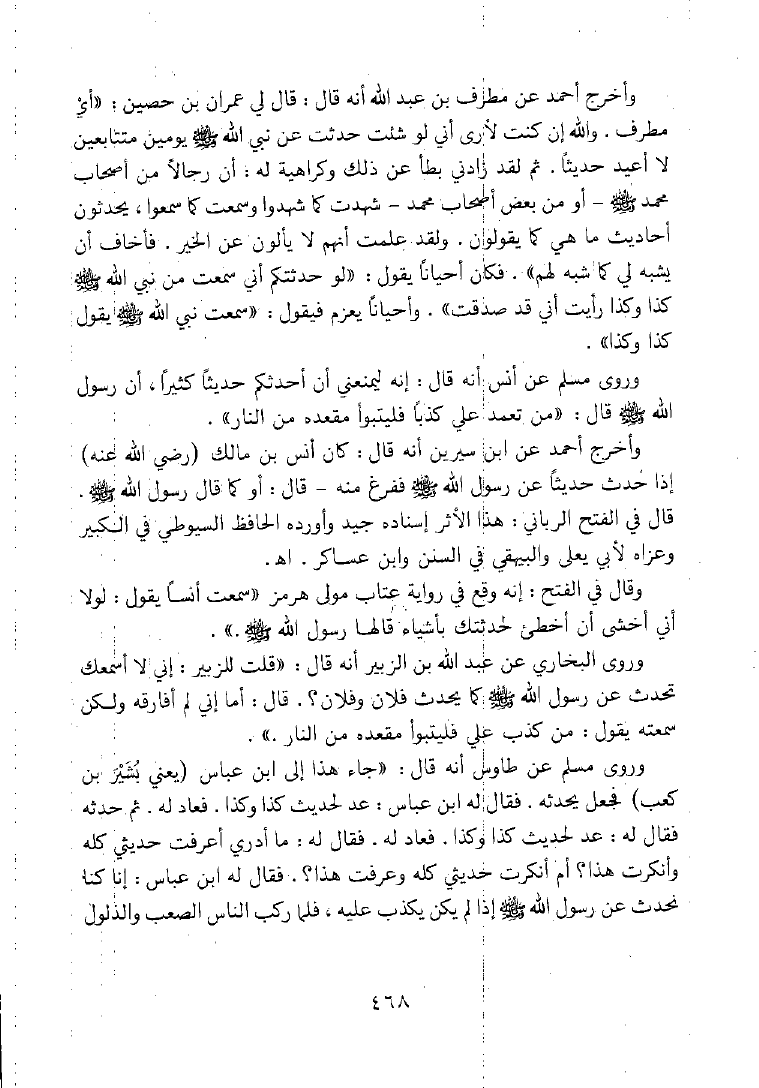 وأخرج أحمد عن مطرف بن عبد الله أنه قال : قال لي عمران بن حصين : «أيْ
مطرف . والله إن كنت لأرى أني لو شئت حدثت عن نبي الله ﷺ يومين متتابعين
لا أعيد حديثاً . ثم لقد زادني بطأ عن ذلك وكراهية له : أن رجالاً من أصحاب
محمد ﷺ – أو من بعض أصحاب محمد – شهدت كما شهدوا وسمعت كما سمعوا ، يحدثون
أحاديث ما هي كما يقولون . ولقد علمت أنهم لا يألون عن الخير . فأخاف أن
يشبه لي كما شبه لهم» . فكان أحياناً يقول : «لو حدثتكم أني سمعت من نبي الله ﷺ
كذا وكذا رأيت أني قد صدقت» . وأحياناً يعزم فيقول : «سمعت نبي الله ﷺ يقول
كذا وكذا» .
وروى مسلم عن أنس أنه قال : إنه ليمنعني أن أحدثكم حديثاً كثيراً ، أن رسول
الله ﷺ قال : «من تعمد علي كذباً فليتبوأ مقعده من النار» .
وأخرج أحمد عن ابن سيرين أنه قال : كان أنس بن مالك (رضي الله عنه)
إذا حدث حديثاً عن رسول الله ﷺ ففرغ منه – قال : أو كما قال رسول الله ﷺ .
قال في الفتح الرباني : هذا الأثر إسناده جيد وأورده الحافظ السيوطي في الكبير
وعزاه لأبي يعلى والبيهقي في السنن وابن عساكر . اهـ .
وقال في الفتح : إنه وقع في رواية عتاب مولى هرمز «سمعت أنساً يقول : لولا
أني أخشى أن أخطئ لحدثتك بأشياء قالها رسول الله ﷺ .» .
وروى البخاري عن عبد الله بن الزبير أنه قال : «قلت للزبير : إني لا أسمعك
تحدث عن رسول الله ﷺ كما يحدث فلان وفلان؟ . قال : أما إني لم أفارقه ولكن
سمعته يقول : من كذب علي فليتبوأ مقعده من النار .» .
وروى مسلم عن طاوس أنه قال : «جاء هذا إلى ابن عباس (يعني بُشَيْرَ بن
كعب) فجعل يحدثه . فقال له ابن عباس : عد لحديث كذا وكذا . فعاد له . ثم حدثه
فقال له : عد لحديث كذا وكذا . فعاد له . فقال له : ما أدري أعرفت حديثي كله
وأنكرت هذا؟ أم أنكرت حديثي كله وعرفت هذا؟ . فقال له ابن عباس : إنا كنا
نحدث عن رسول الله ﷺ إذا لم يكن يكذب عليه ، فلما ركب الناس الصعب والذلول
٤٦٨